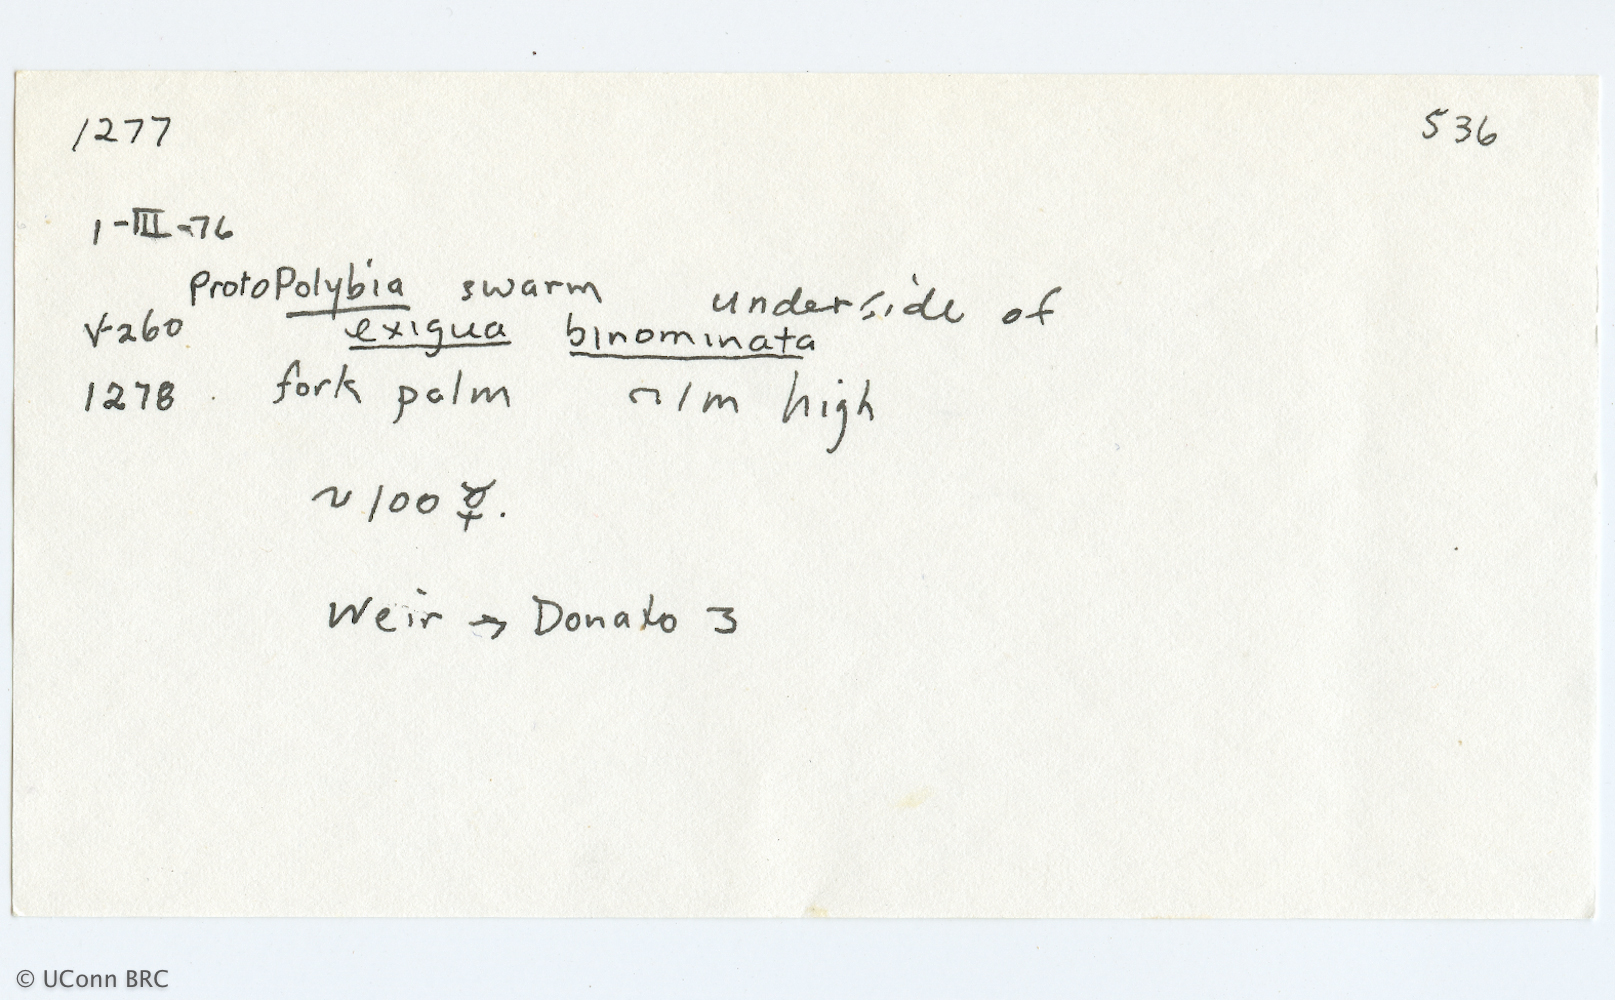 1277
536
1-III-76
ProtoPolybia swarm underside of
V-260 exigua binominata
1278 fork palm ~1m high
~100 ☿.
Weir → Donato 3
© UConn BRC